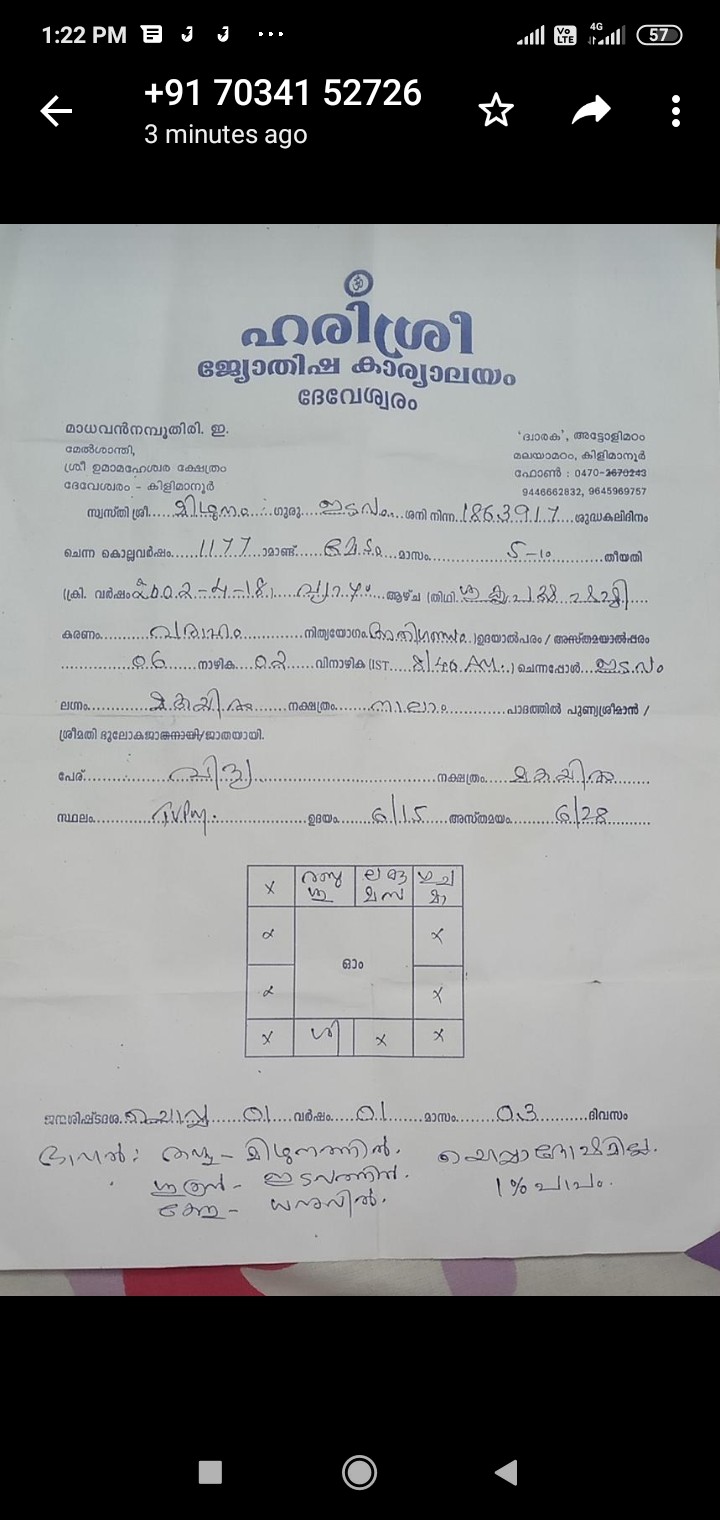 1:22 PM 4G Vo LTE 57
+91 70341 52726
3 minutes ago
ഹരിശ്രീ
ജ്യോതിഷ കാര്യാലയം
ദേവേശ്വരം
മാധവൻനമ്പൂതിരി. ഇ.
മേൽശാന്തി,
ശ്രീ ഉമാമഹേശ്വര ക്ഷേത്രം
ദേവേശ്വരം - കിളിമാനൂർ
'ദ്വാരക', അട്ടോളിമഠം
മലയാമഠം, കിളിമാനൂർ
ഫോൺ : 0470-2670243
9446662832, 9645969757
സ്വസ്തി ശ്രീ മിഥുനം ഗുരു ഇടവം ശനി നിന്ന 1863917 ശുദ്ധകലിദിനം
ചെന്ന കൊല്ലവർഷം 1177 ാമാണ്ട് മേടം മാസം 5-ാം തീയതി
(ക്രി. വർഷം 2002-4-18) വ്യാഴം ആഴ്ച (തിഥി ഷഷ്ഠി
കരണം വരാഹം നിത്യയോഗം അതിഗണ്ഡം ) ഉദയാൽപരം / അസ്തമയാൽപരം
06 നാഴിക 02 വിനാഴിക (IST 8/40 AM ) ചെന്നപ്പോൾ ഇടവം
ലഗ്നം മകയിരം നക്ഷത്രം നാലാം പാദത്തിൽ പുണ്യശ്രീമാൻ /
ശ്രീമതി ഭൂലോകജാതനായി/ജാതയായി.
പേര് വിദ്യ നക്ഷത്രം മകയിരം
സ്ഥലം TVPM. ഉദയം 6/15 അസ്തമയം 6/28
x
x x
ഓം
x x
x ശി x x
ജന്മശിഷ്ടദശ ചൊവ്വ 01 വർഷം 01 മാസം 03 ദിവസം
മിഥുനത്തിൽ.
ഇടവത്തിൽ.
ധനുവിൽ.
1% പാപം.